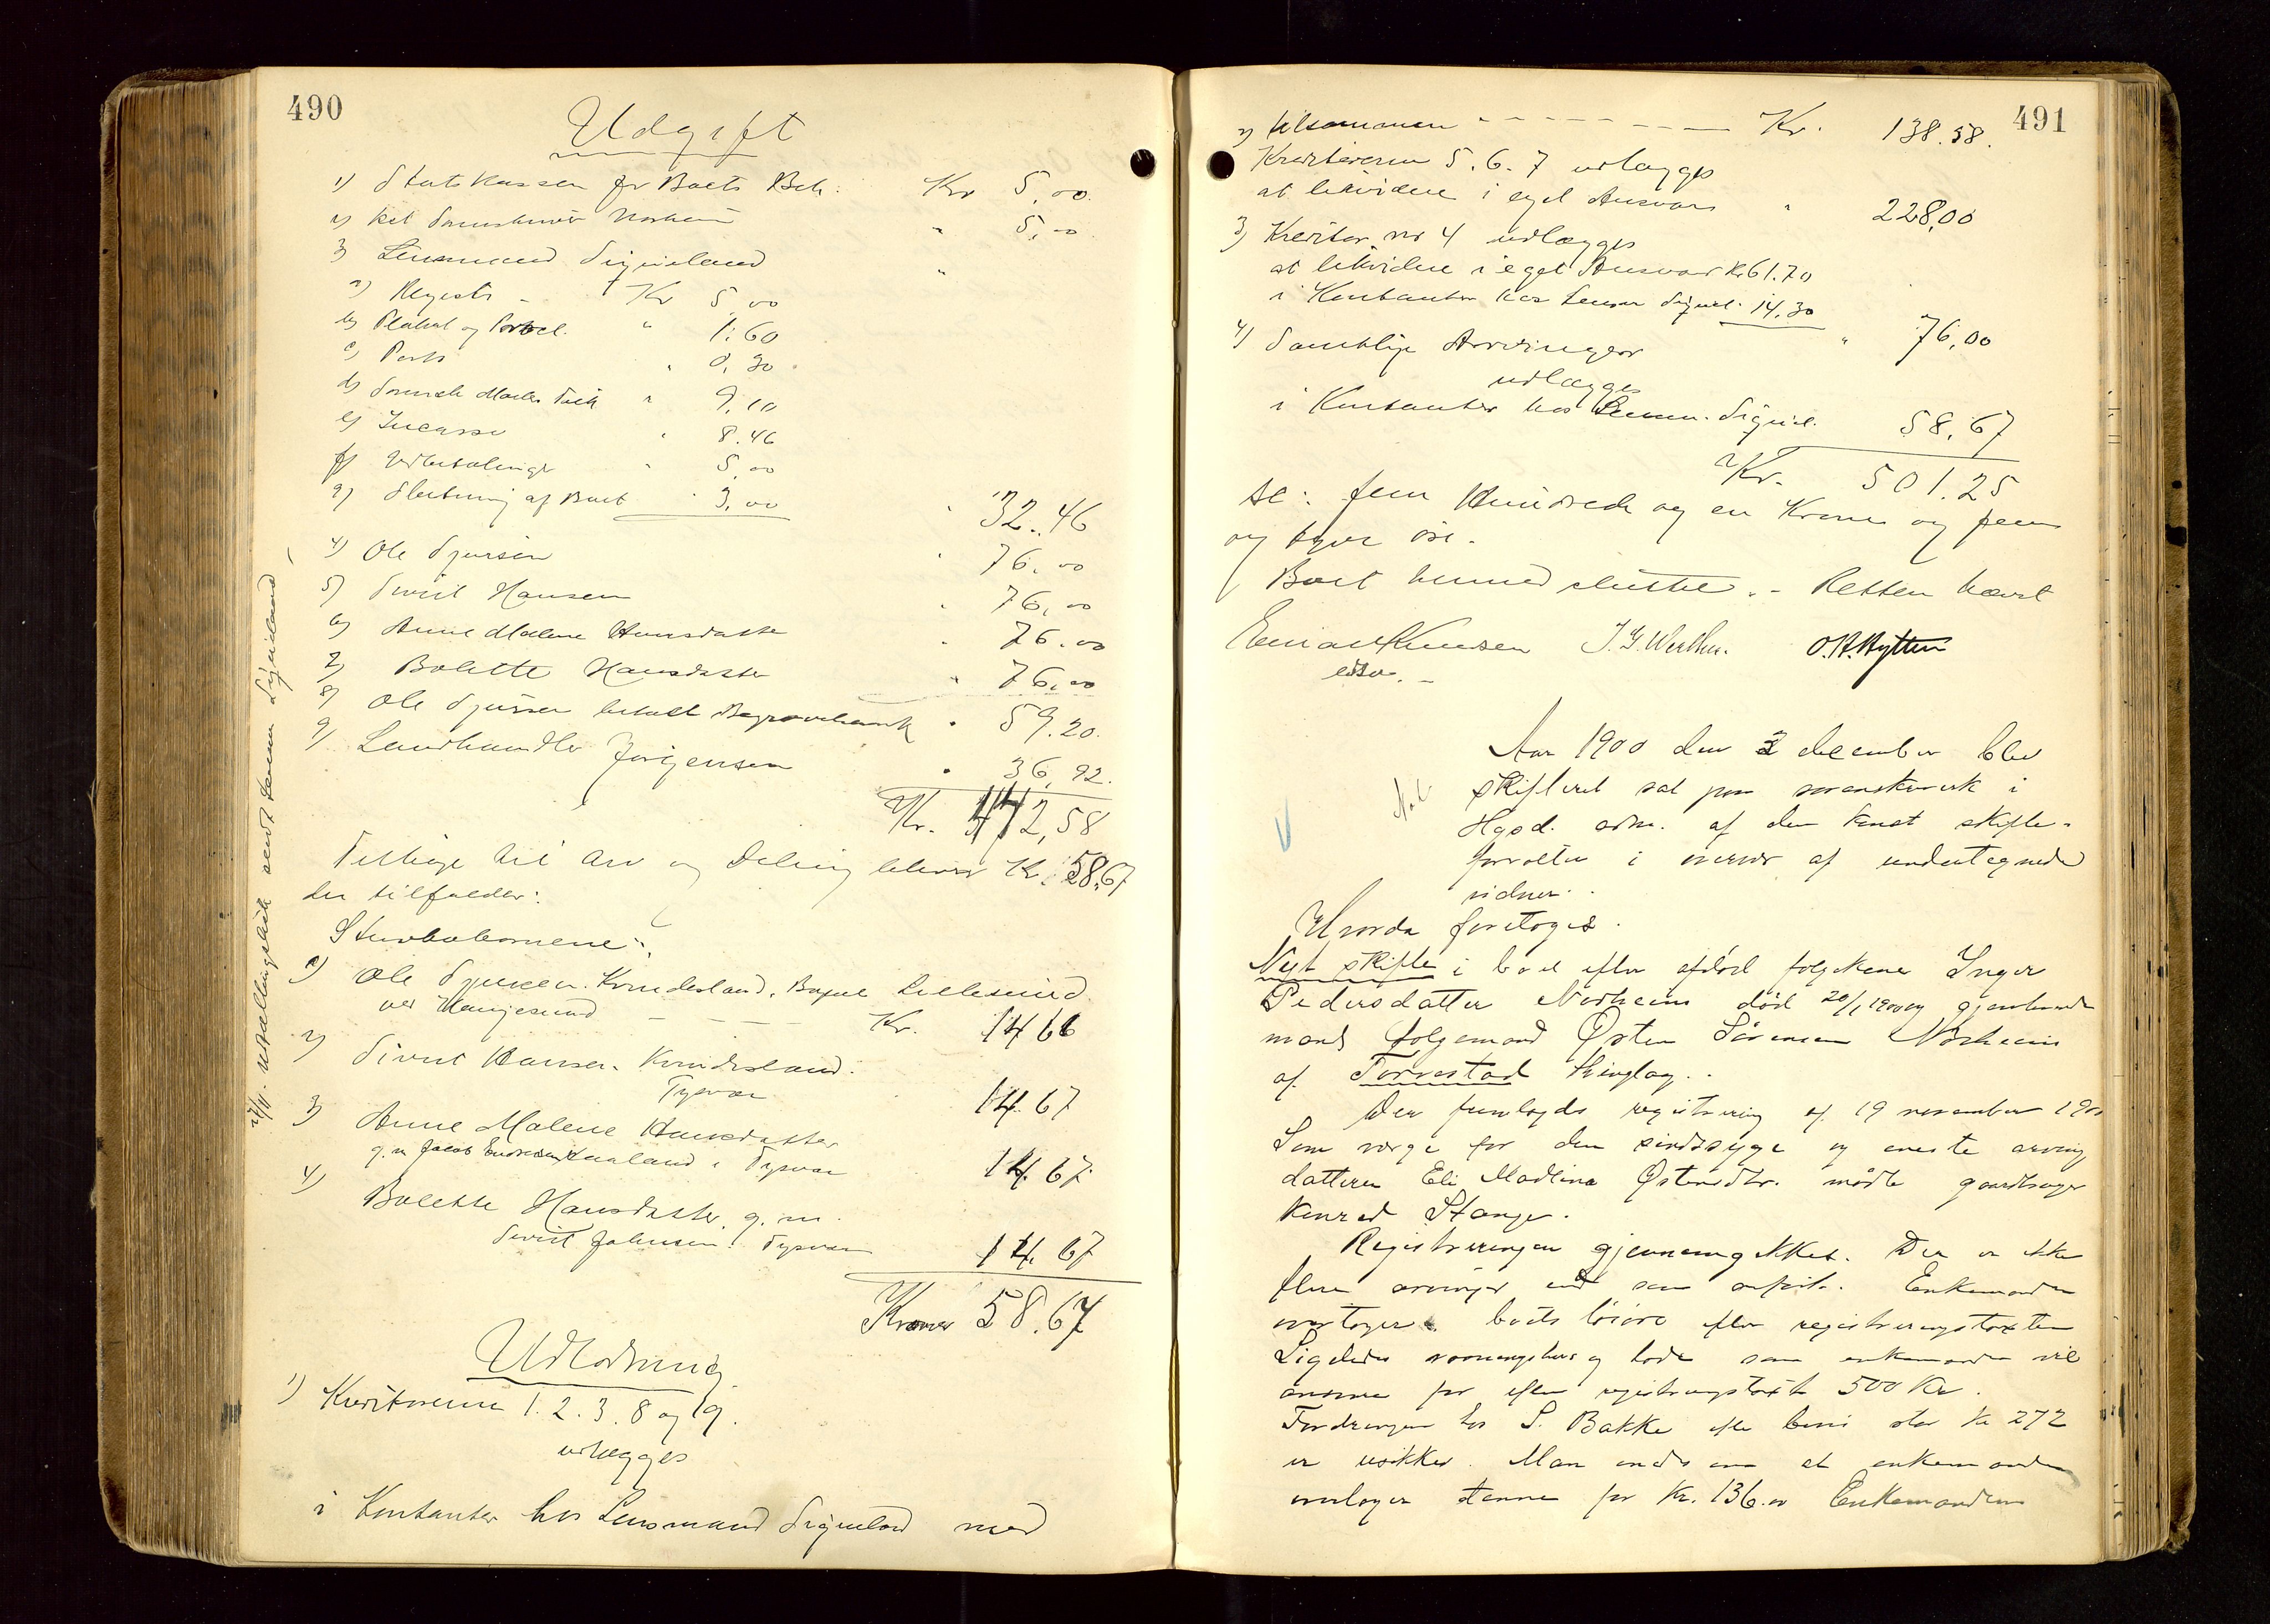 490
Udgift
1) Statskassen for Boets Beh. Kr 5.00
2) Norheim " 5.00
3) Lensmand Signeland "
a) Registr - Kr 5.00
b) Plakat og " 1.60
c) Porto " 0.30
d) " 9.10
e) Incasso " 8.46
f) Udbetalinger " 5.00
g) Slutning af Boet " 3.00
" 32.46
4) Ole Sjursen " 76.00
5) Sivert Hansen " 76.00
6) Anne Malene Hansdatter " 76.00
7) Bolette Hansdatter " 76.00
8) Ole Sjursen betalt " 59.20.
9) Landhandler Jørgensen " 36.92.
Kr. 442,58
Tilbage til Arv og Deling bliver Kr. 58,67
der tilfalder:
Stuvbobørnene:
1) Ole Sjursen Kvindesland,
ved Haugesund - - - Kr. 14 66
2) Sivert Hansen Kvindesland
Tysvær 14.67
3) Anne Malene Hansdatter
g.m. Jacob i Tysvær 14.67
4) Bolette Hansdatter, g.m.
Sivert Johnsen Tysvær 14.67
Kroner 58.67
Udlodning
1) Kreditorerne 1. 2. 3. 8 og 9.
udlægges
i Kontanter hos Lensmand Signeland med
491
tilsammen - - - - - - - Kr. 138.58.
2) Kreditorerne 5. 6. 7 udlægges
at likvidere i eget Ansvar " 228,00
3) Kreditor nr 4 udlægges
at likvidere i eget Ansvar Kr 61.70
i Kontanter hos Lensm Signel. 14.30
" 76,00
4) Samtlige Arvinger
udlægges
i Kontanter hos Lensm. Signel. 58,67
Kr. 501.25
sc: fem Hundrede og en Krone og fem
og tyve øre.
Boet hermed sluttet. - Retten hævet
Knudsen O.H. Hytten
edsv. -
Aar 1900 den 3 december blev
skifteret sat paa sorenskriverk i
Hgsd. adm. af den const skifte-
forvalter i overvær af undertegnede
vidner.
Hvorda foretoges.
Nyt skifte i boet efter afdød folgekone Inger
Pedersdatter Norheim død 20/1 1900 og gjenlevende
mand folgemand Østen Sørensen Norheim
af Torvestad thinglag.
Der fremlagdes registrering af 19 november 1900
Som verge for den sindssyge og eneste arving
datteren Eli Madlina Østensdtr. mødte gaardbruger
Konrad Stange.
Registreringen gjennemgikkes. Der er ikke
flere arvinger end som anført. Enkemanden
overtager boets løsøre efter registreringstaxten
Ligeledes vaaningshus og lade som enkemanden vil
for efter registreringstaxt 500 Kr.
Fordringen hos S. Bakke efter bevis stor Kr 272
er usikker. Man enedes om at enkemanden
overtager denne for Kr. 136.00 Enkemanden